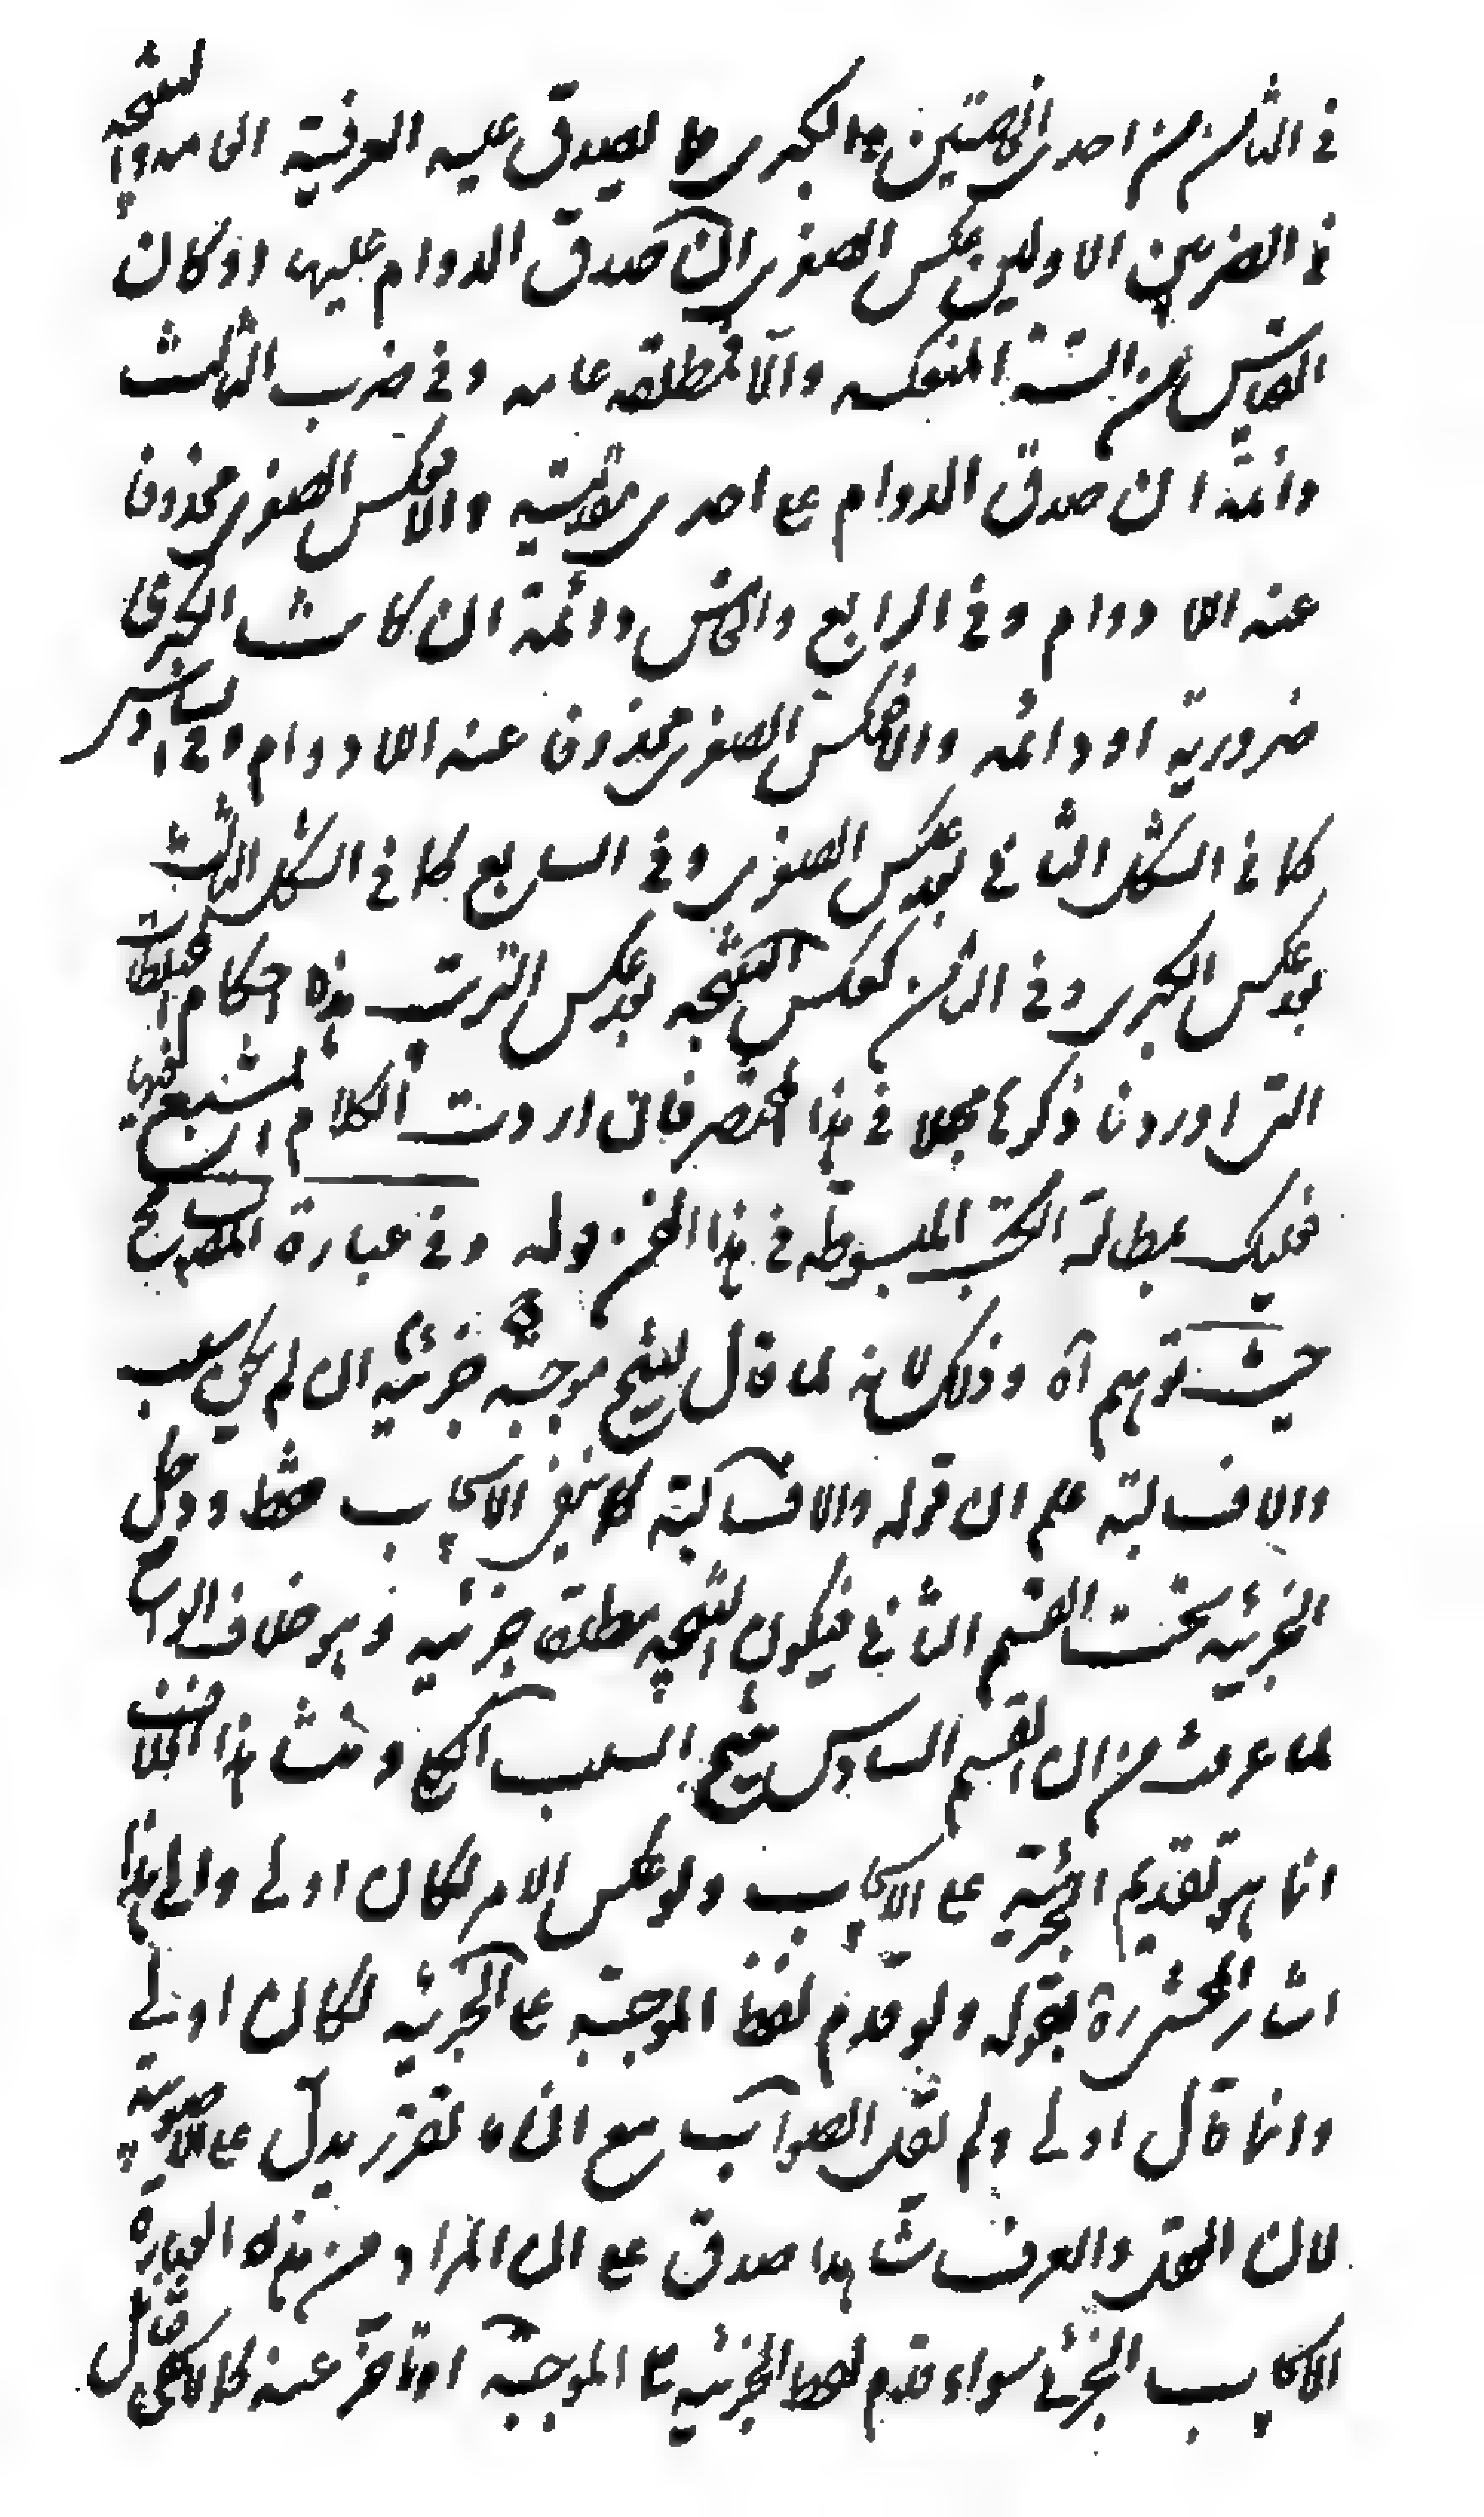 في الثامن من احدى الخاصتين والكبرى مما يصدق عليه العرفية العامة والنتيجة
في الضربين الاولين عكس الصغرى ان صدق الدوام عليها او كان
القياس من الستة المنعكسة والا فمطلقة عامة وفي ضرب الثالث
دائمة ان صدق الدوام على احدى مقدمتيه والا فعكس الصغرى محذوفا
عنه اللا دوام وفي الرابع والخامس دائمة ان كانت الكبرى
ضرورية او دائمة والا فعكس الصغرى محذوفا عنه اللا دوام وفي السادس
كما في الشكل الثاني بعد عكس الصغرى وفي السابع كما في الشكل الثالث
بعد عكس الكبرى وفي الثامن كعكس النتيجة بعد عكس الترتيب هذه احكام المختلطات
التي اوردنا ذكرها مجملا في هذا المختصر فان اردت الكلام المشبع فيها
فعليك بمطالعة الكتب المبسوطة في هذا الفن قوله وفي عبارة المصنف تسامح
حيث توهم آه وذلك لانه لما قال ينتج موجبة جزئية ان لم يكن بسلب
والا فسالبة علم ان قوله والا فسالبة لا نفي الايجاب فقط ودخل
الجزئية تحت القسم الثاني فيكون النتيجة مطلقا جزئية وهو خلاف الواقع
لما عرفت من ان القسم السادس ينتج السلب الكلي ومنشأ هذا
انما هو تقديم الجزئية على الايجاب ولو عكس الامر لكان اولى والى هذا
اشار المحشي رة بقوله ولو قدم لفظ الموجبة على الجزئية لكان اولى
وانما قال اولى ولم يقل الصواب مع ان ما تقرر يدل على
لان العقل والعرف شاهدا صدق على ان المراد من هذه العبارة
الايجاب الجزئي سواء قدم لفظ الجزئية على الموجبة او تاخر عنه كما لا يخفى فتامل